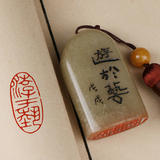 遊於藝
戊戌